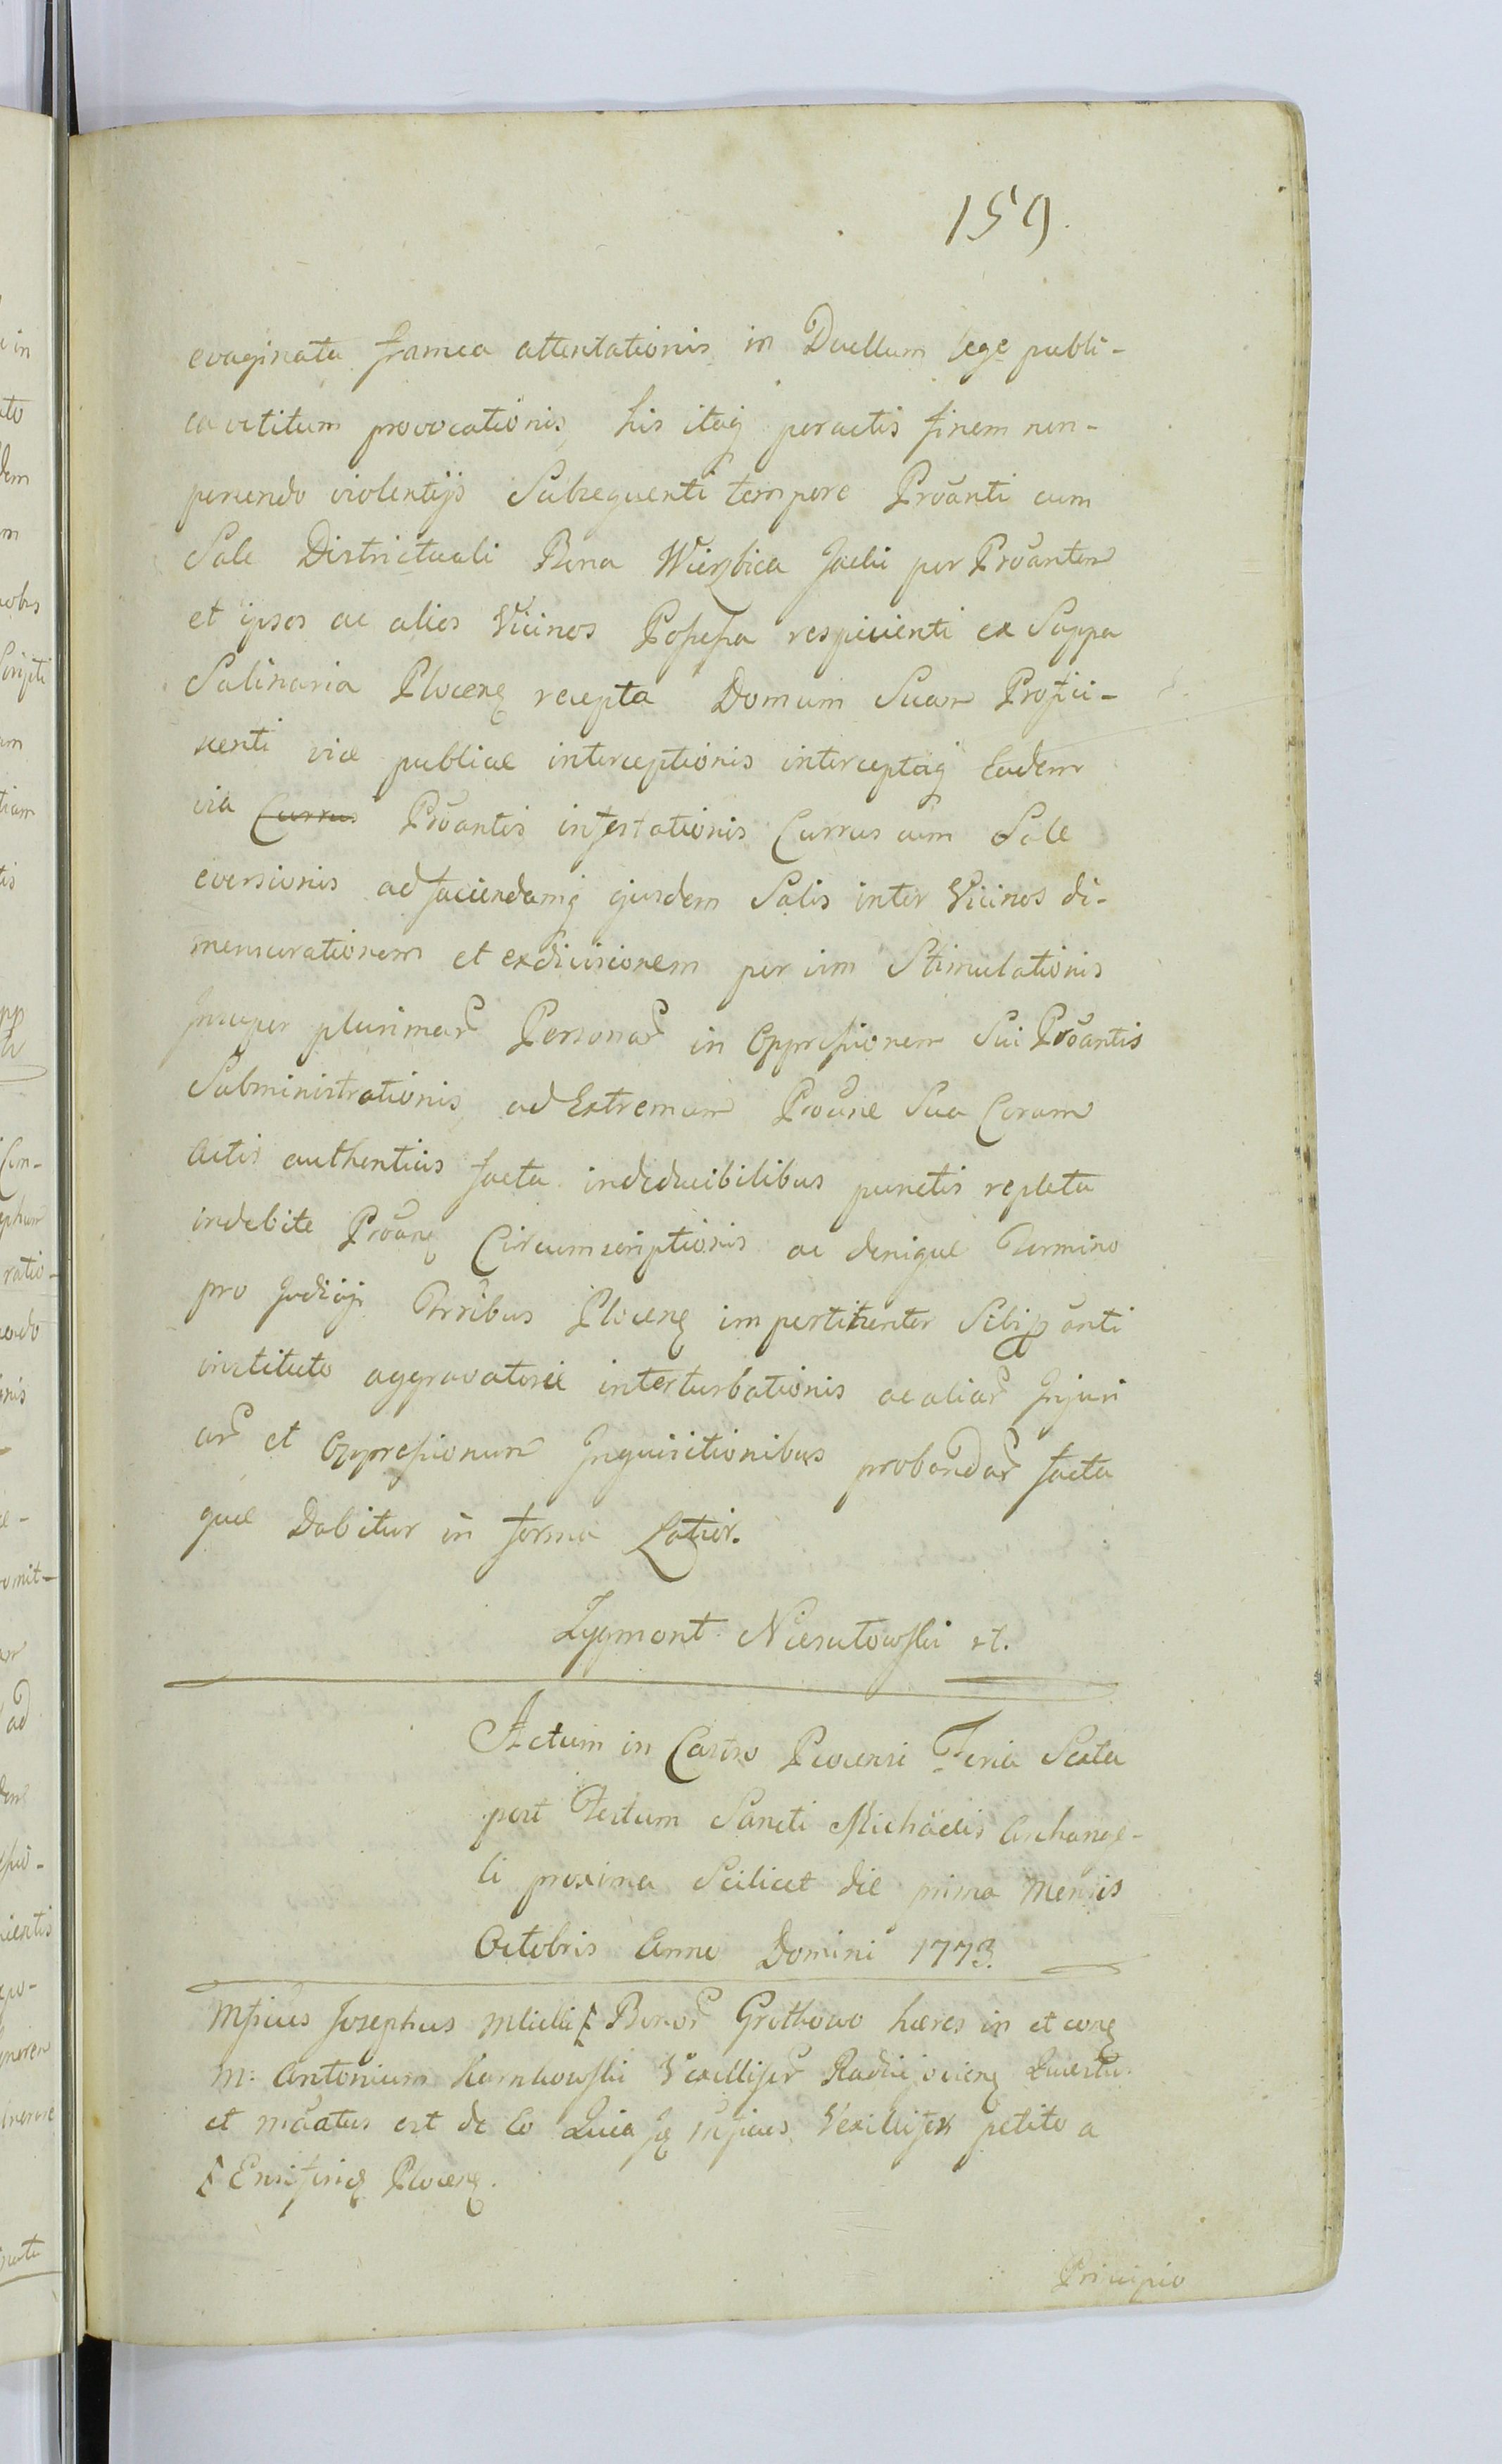 159.
evaginata framea attentationis in Duellum lege publi-
ca vetitum provocationis, his itaq peractis finem non-
ponendo violentijs Subsequenti tempore Proanti cum
Sale Districtuali Bona Wierzbica Jaelii per Proantem
et ipsos ac alios Vicinos Possessa respicienti ex Sappa
Salinaria Plocen recepta Domum Suam Profici-
scenti viæ publicæ interceptionis interceptaq Eadem
via Currus Proantis infestationis Currus cum Sale
eversionis ad faciendamq ejusdem Salis inter Vicinos di-
mensurationem et exdivisionem per vim Stimulationis
Insuper plurimar Personar in Oppressionem Sui Proantis
Subministrationis, ad Extremum Proune Sua Coram
Actis authenticis facta indeducibilibus punctis repleta
indebite Proan Circumscriptionis ac denique Termino
pro Judicijs Trribus Plocen impertinenter Sibi panti
instituto aggravatoriæ interturbationis ac aliar Injuri
ar et Oppressionum Inquisitionibus probandar facta
quæ Dabitur in forma Latior.
Zygmont Nierutowski
Actum in Castro Plocensi Feria Sexta
post Festum Sancti Michäelis Archange-
li proxima Scilicet die prima Mensis
Octobris Anno Domini 1773.
Mficus Josephus Mlicki Bonor Grothowo hæres in et con
M. Antonium Karnkowski Vexillifer Radziejovien Questu
et maatus est de Eo Quia Mficus Vexillifer petito a
Ensiferid Plocen.
Principio